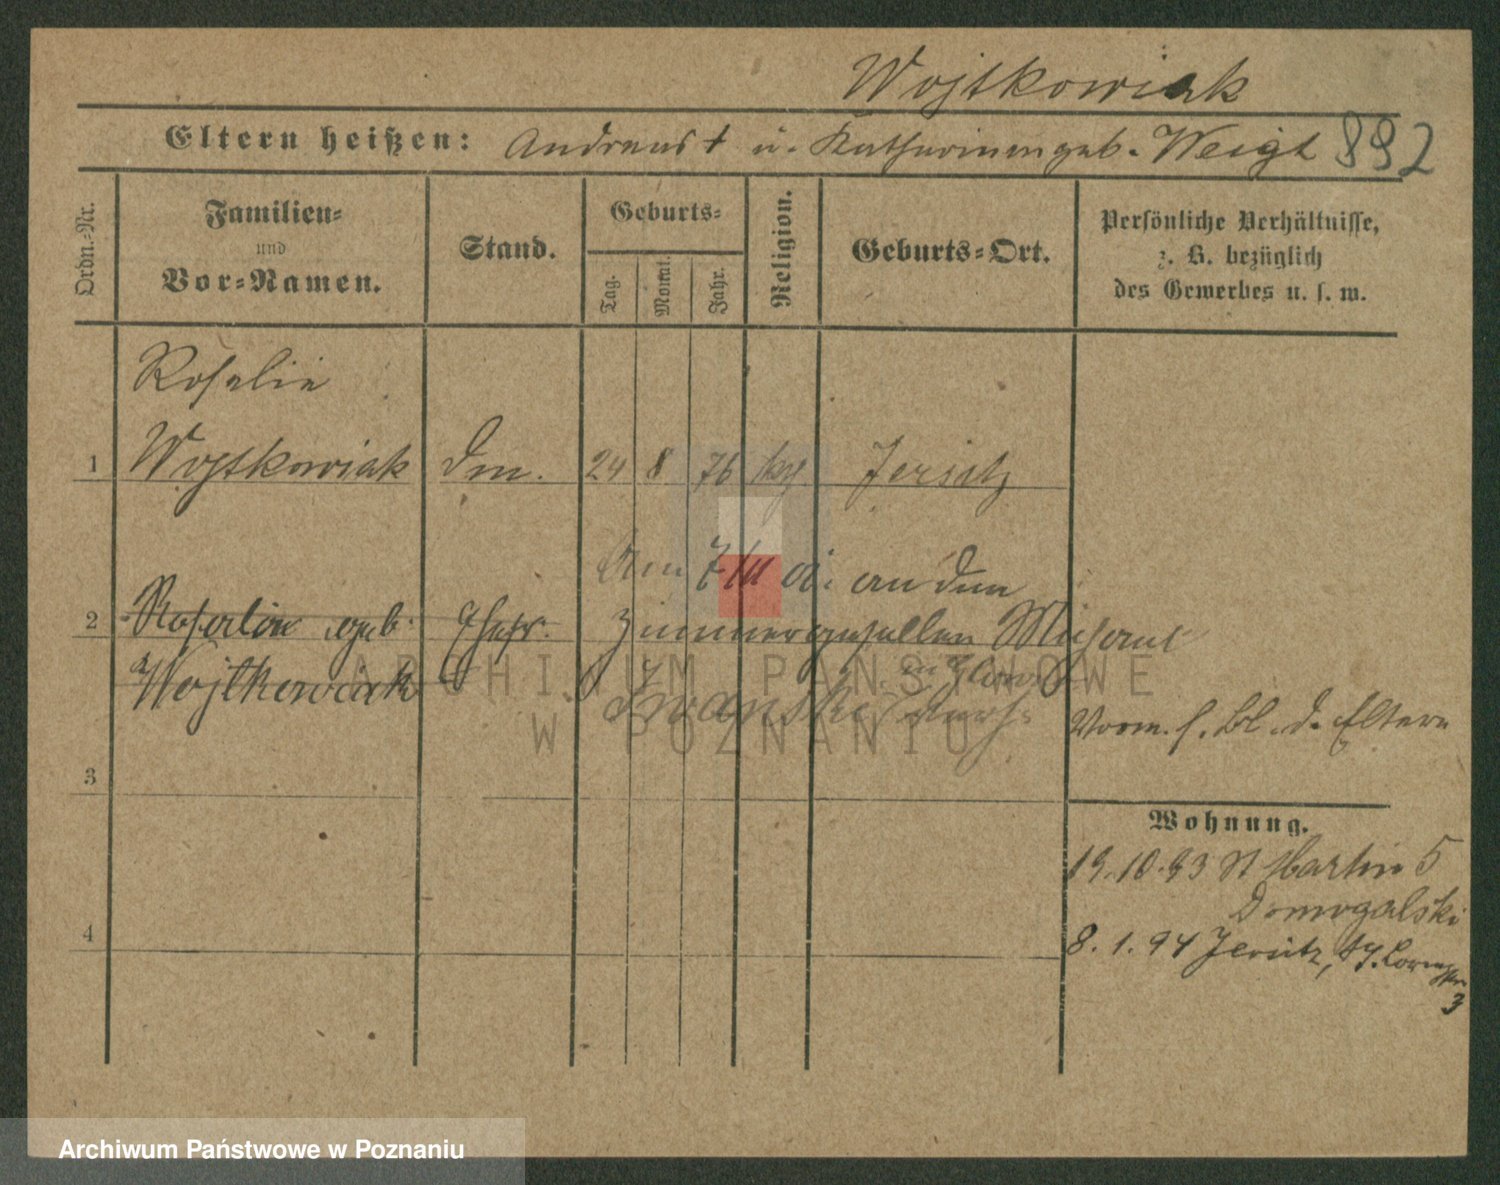 Wojtkowiak
Eltern heißen: Andreas † u. Katharina geb. Weigt 892
Ordn.-Nr.
Familien-
und
Vor-Namen.
Stand.
Geburts-
Tag.
Monat.
Jahr.
Religion.
Geburts-Ort.
Persönliche Verhältnisse,
z. B. bezüglich
des Gewerbes u. s. w.
Rosalie
1 Wojtkowiak 24 8 76 Jersitz
Am an den
2 Rosalie geb. Ehefr. Zimmergesellen
Wojtkowiak
Iwanski
Vorm. f. Bl. d. Eltern
3
Wohnung.
19.10.93 St Martin 5
Domogalski
4
8. 1. 94 Jersitz,
3
ARCHIWUM PAŃSTWOWE
W POZNANIU
Archiwum Państwowe w Poznaniu